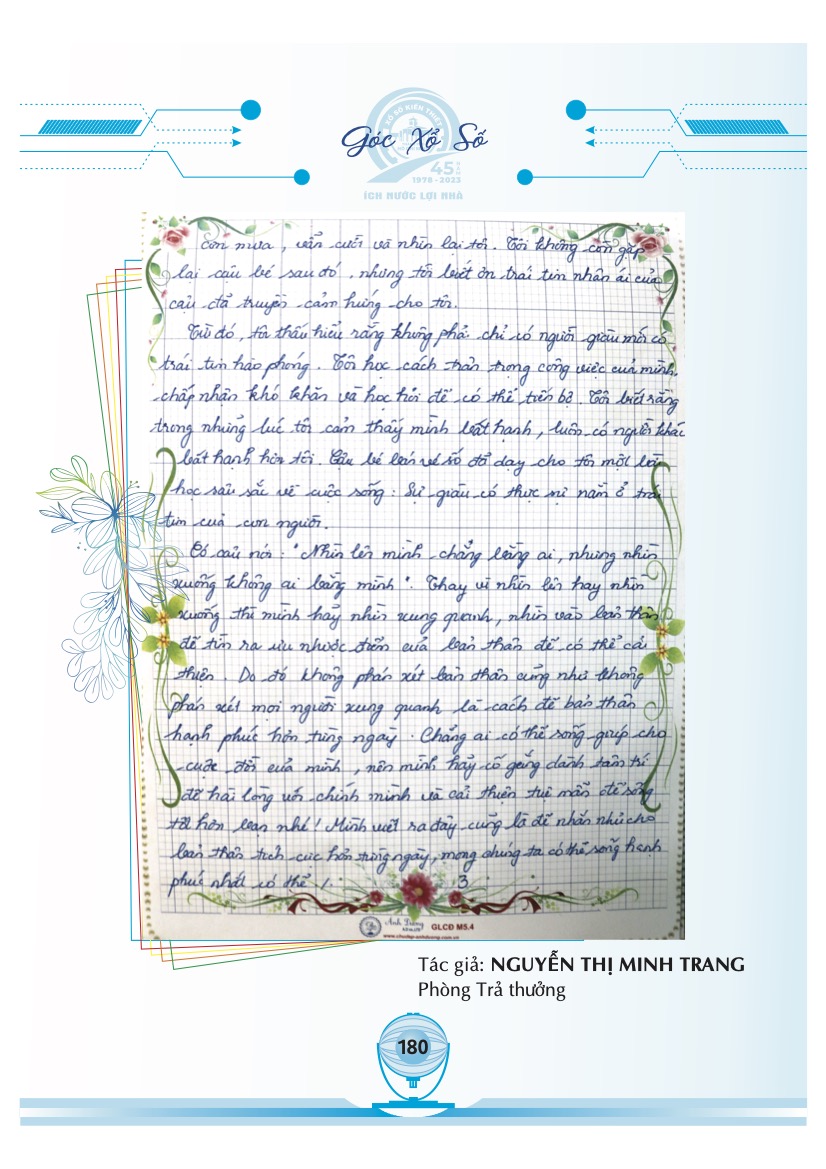 XỔ SỐ KIẾN THIẾT
Góc Xổ Số
45 NĂM
1978 - 2023
ÍCH NƯỚC LỢI NHÀ
cơn mưa, vẫn cười và nhìn lại tôi. Tôi không còn gặp
lại cậu bé sau đó, nhưng tôi biết ơn trái tim nhân ái của
cậu đã truyền cảm hứng cho tôi.
Từ đó, tôi thấu hiểu rằng không phải chỉ có người giàu mới có
trái tim hào phóng. Tôi học cách trân trọng công việc của mình,
chấp nhận khó khăn và học hỏi để có thể tiến bộ. Tôi biết rằng
trong những lúc tôi cảm thấy mình bất hạnh, luôn có người khác
bất hạnh hơn tôi. Cậu bé bán vé số đã dạy cho tôi một bài
học sâu sắc về cuộc sống: Sự giàu có thực sự nằm ở trái
tim của con người.
Có câu nói: "Nhìn lên mình chẳng bằng ai, nhưng nhìn
xuống không ai bằng mình". Thay vì nhìn lên hay nhìn
xuống thì mình hãy nhìn xung quanh, nhìn vào bản thân
để tìm ra ưu nhược điểm của bản thân để có thể cải
thiện. Do đó không phán xét bản thân cũng như không
phán xét mọi người xung quanh là cách để bản thân
hạnh phúc hơn từng ngày. Chẳng ai có thể sống giúp cho
cuộc đời của mình, nên mình hãy cố gắng dành tâm trí
để hài lòng với chính mình và cải thiện tuệ mẫn để sống
tốt hơn bạn nhé! Mình viết ra đây cũng là để nhắn nhủ cho
bản thân tích cực hơn từng ngày, mong chúng ta có thể sống hạnh
phúc nhất có thể /. 3
Ánh Dương
GLCĐ M5.4
Tác giả: NGUYỄN THỊ MINH TRANG
Phòng Trả thưởng
180